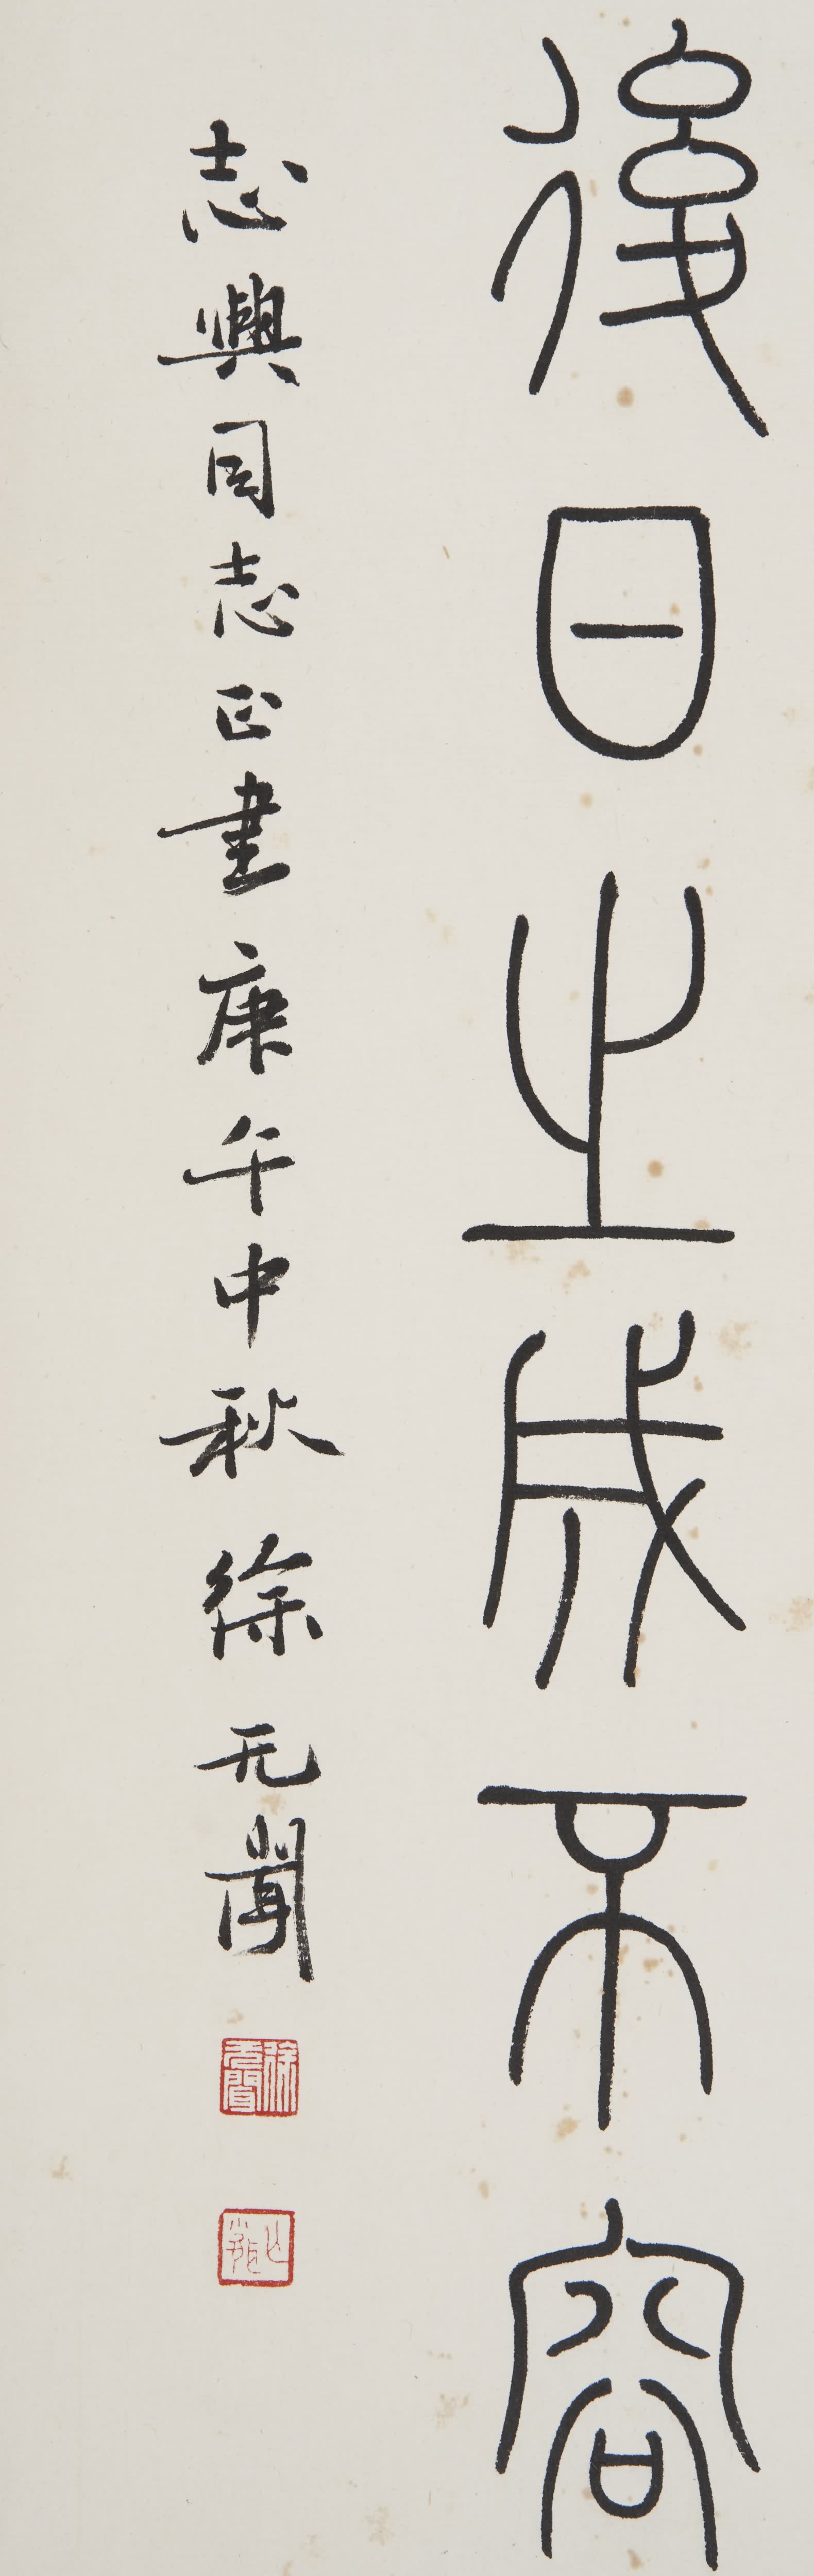 後日之成不容
志輿同志正書 庚午中秋 徐无聞
徐无聞